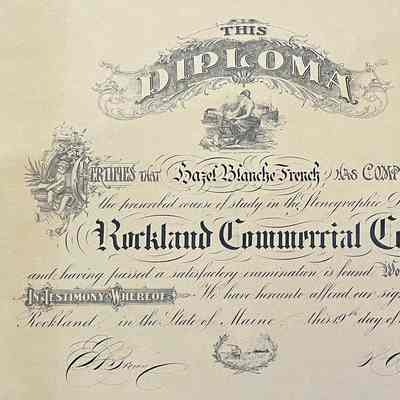 THIS
DIPLOMA
CERTIFIES THAT Hazel Blanche French HAS COMP
the prescribed course of study in the Stenographic D
Rockland Commercial Co
and having passed a satisfactory examination is found Wo
IN TESTIMONY WHEREOF We have hereunto affixed our sig
Rockland in the State of Maine, this 19th day of